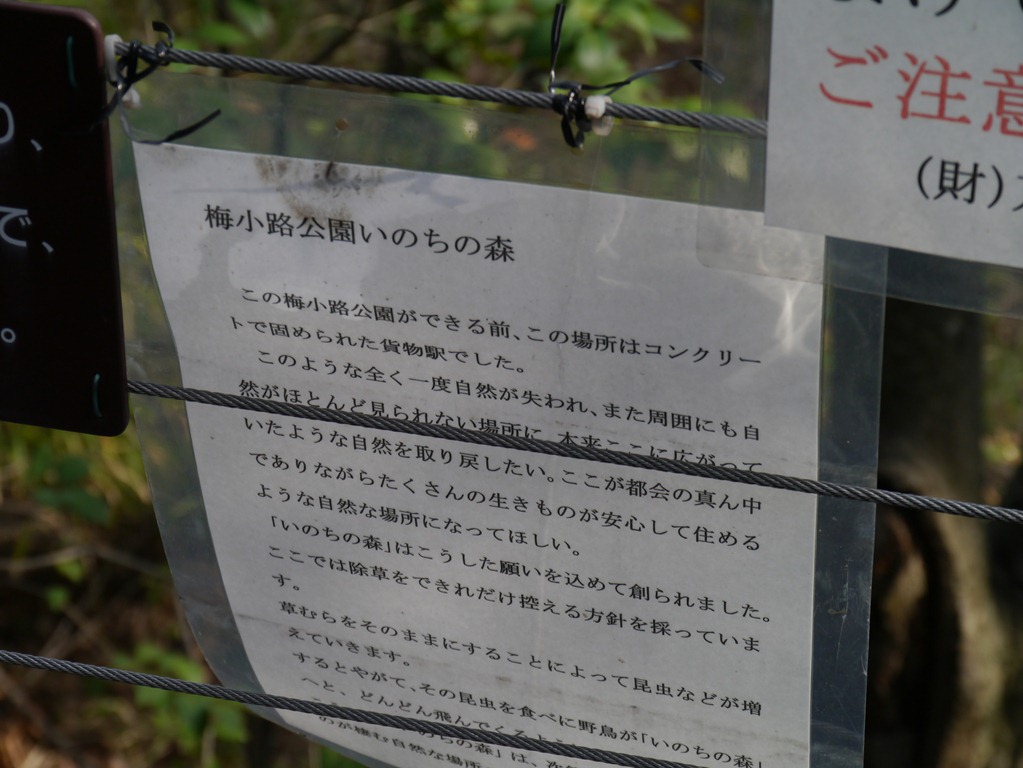 り、
で、
。
ご注意
(財)
梅小路公園いのちの森
この梅小路公園ができる前、この場所はコンクリー
トで固められた貨物駅でした。
このような全く一度自然が失われ、また周囲にも自
然がほとんど見られない場所に、本来ここに広がって
いたような自然を取り戻したい。ここが都会の真ん中
でありながらたくさんの生きものが安心して住める
ような自然な場所になってほしい。
「いのちの森」はこうした願いを込めて創られました。
ここでは除草をできれだけ控える方針を採っていま
す。
草むらをそのままにすることによって昆虫などが増
えていきます。
するとやがて、その昆虫を食べに野鳥が「いのちの森」
へと、どんどん飛んでくるよ
のちの森」は、
のが棲む自然な場所